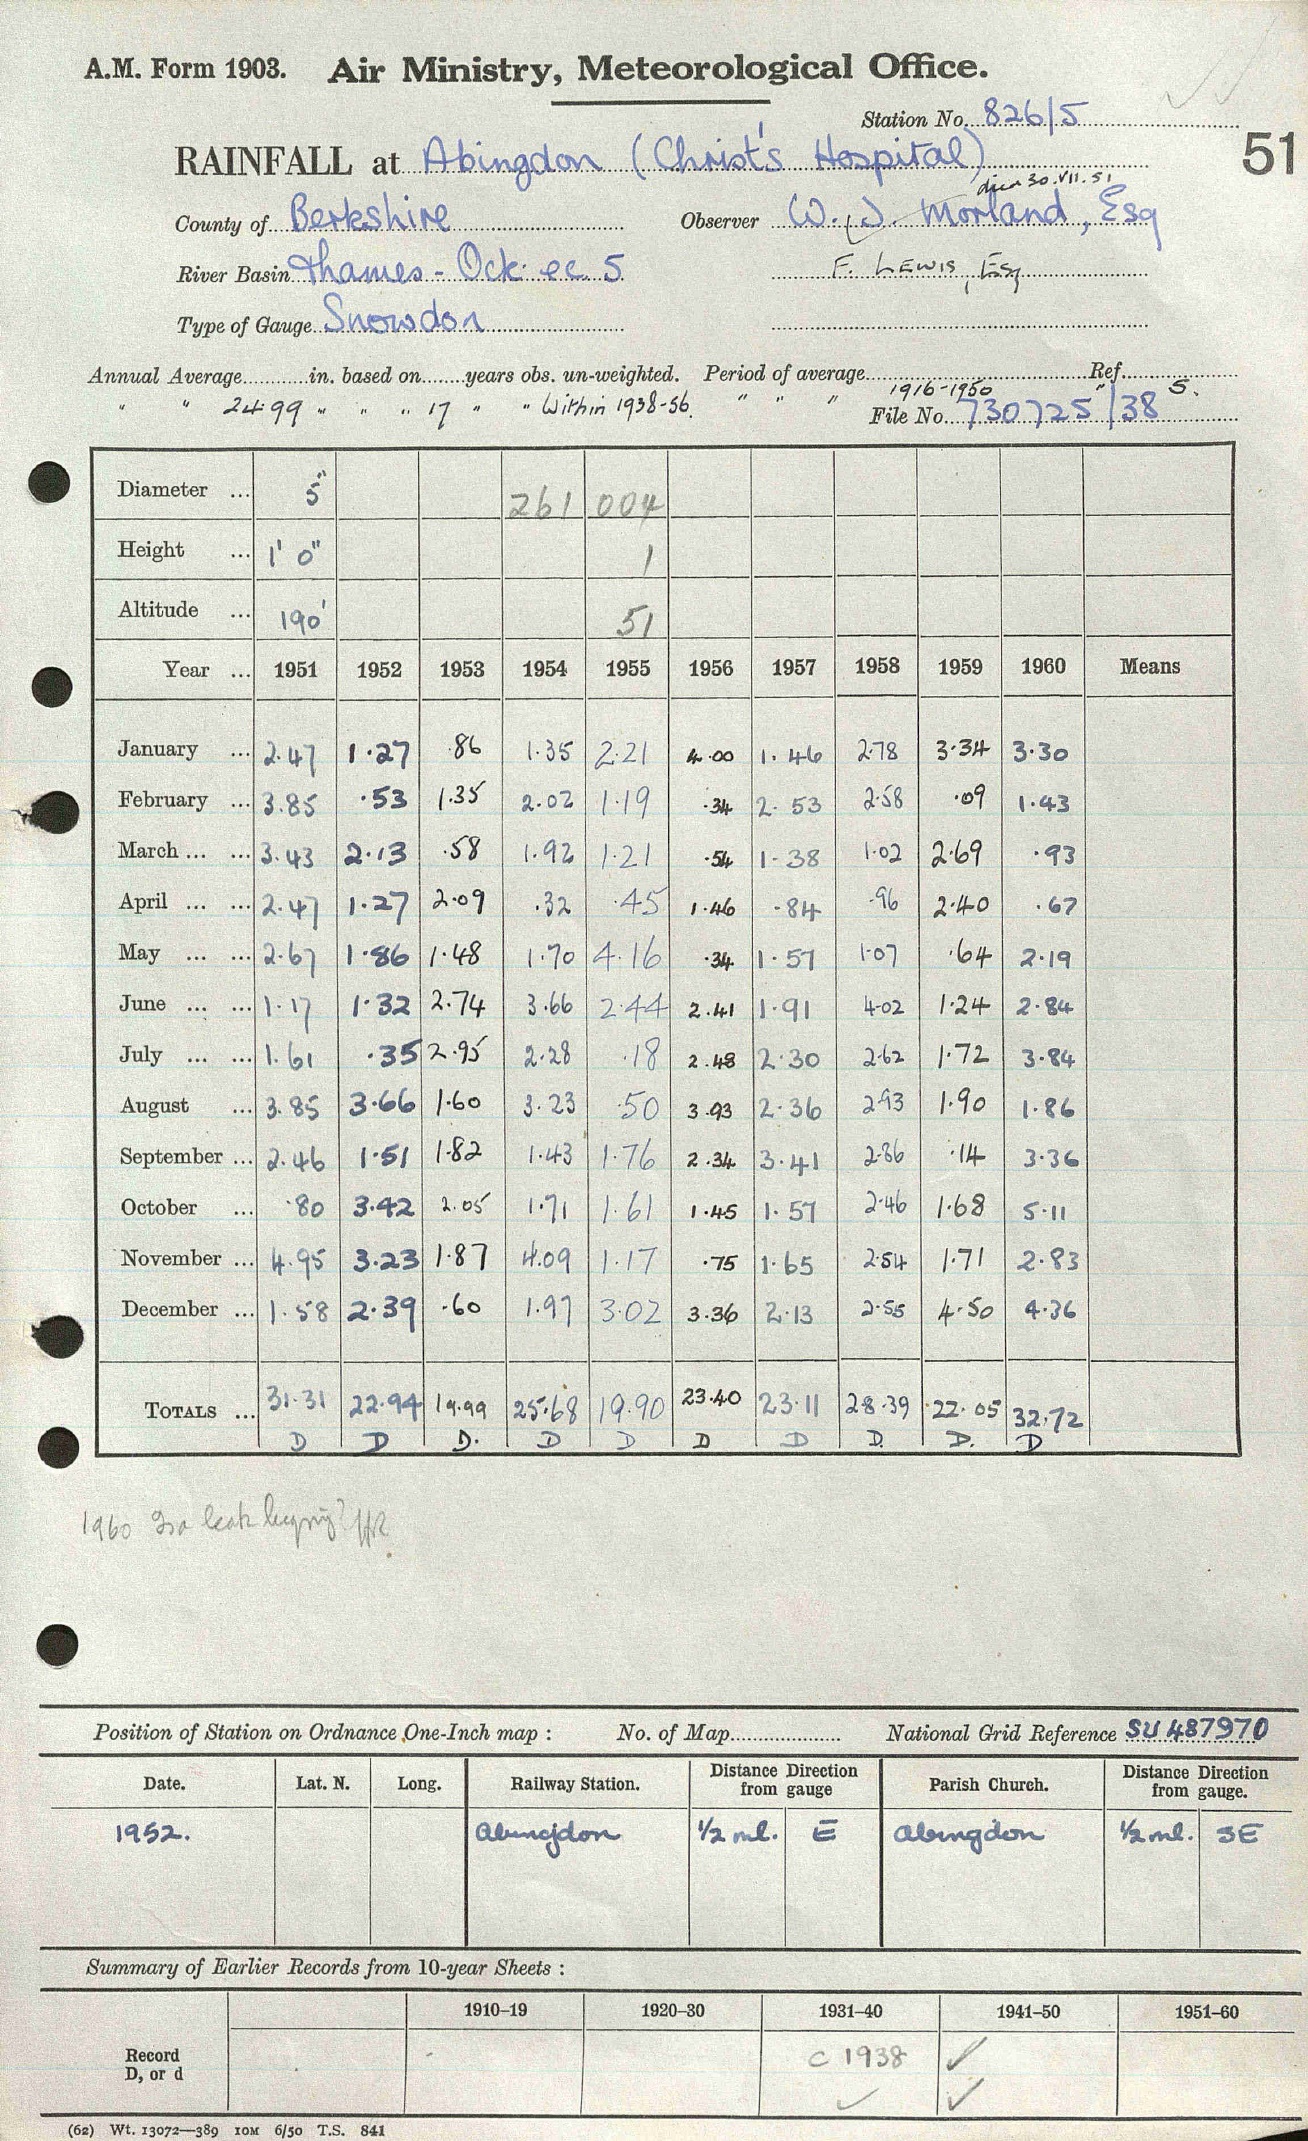 A.M. Form 1903. Air Ministry, Meteorological Office.
Station No. 826/5
51
RAINFALL at Abingdon (Christ's Hospital)
died 30.VII.51
County of Berkshire Observer W. J. Morland, Esq
River Basin Thames - Ock ec 5 F. Lewis, Esq
Type of Gauge Snowdon
Annual Average in. based on years obs. un-weighted. Period of average Ref.
" " 24.99 " " " 17 " " Within 1938-56. " " " 1916-1950 " 5.
File No. 730725/38
Diameter ... 5" 261 004
Height ... 1' 0" 1
Altitude ... 190' 51
Year ... 1951 1952 1953 1954 1955 1956 1957 1958 1959 1960 Means
January ... 2.47 1.27 .86 1.35 2.21 4.00 1.46 2.78 3.34 3.30
February ... 3.85 .53 1.35 2.02 1.19 .34 2.53 2.58 .09 1.43
March ... ... 3.43 2.13 .58 1.92 1.21 .54 1.38 1.02 2.69 .93
April ... ... 2.47 1.27 2.09 .32 .45 1.46 .84 .96 2.40 .67
May ... ... 2.67 1.86 1.48 1.70 4.16 .34 1.57 1.07 .64 2.19
June ... ... 1.17 1.32 2.74 3.66 2.44 2.41 1.91 4.02 1.24 2.84
July ... ... 1.61 .35 2.95 2.28 .18 2.48 2.30 2.62 1.72 3.84
August ... 3.85 3.66 1.60 3.23 .50 3.93 2.36 2.93 1.90 1.86
September ... 2.46 1.51 1.82 1.43 1.76 2.34 3.41 2.86 .14 3.36
October ... .80 3.42 2.05 1.71 1.61 1.45 1.57 2.46 1.68 5.11
November ... 4.95 3.23 1.87 4.09 1.17 .75 1.65 2.54 1.71 2.83
December ... 1.58 2.39 .60 1.97 3.02 3.36 2.13 2.55 4.50 4.36
TOTALS ... 31.31 22.94 19.99 25.68 19.90 23.40 23.11 28.39 22.05 32.72
D D D. D D D D D. D. D
1960
Position of Station on Ordnance One-Inch map : No. of Map National Grid Reference SU 487970
Date. Lat. N. Long. Railway Station. Distance from Direction gauge Parish Church. Distance from Direction gauge.
1952. Abingdon 1/2 ml. E Abingdon 1/2 ml. SE
Summary of Earlier Records from 10-year Sheets :
1910–19 1920–30 1931–40 1941–50 1951–60
Record
D, or d
c 1938
(62) Wt. 13072—389 10M 6/50 T.S. 841